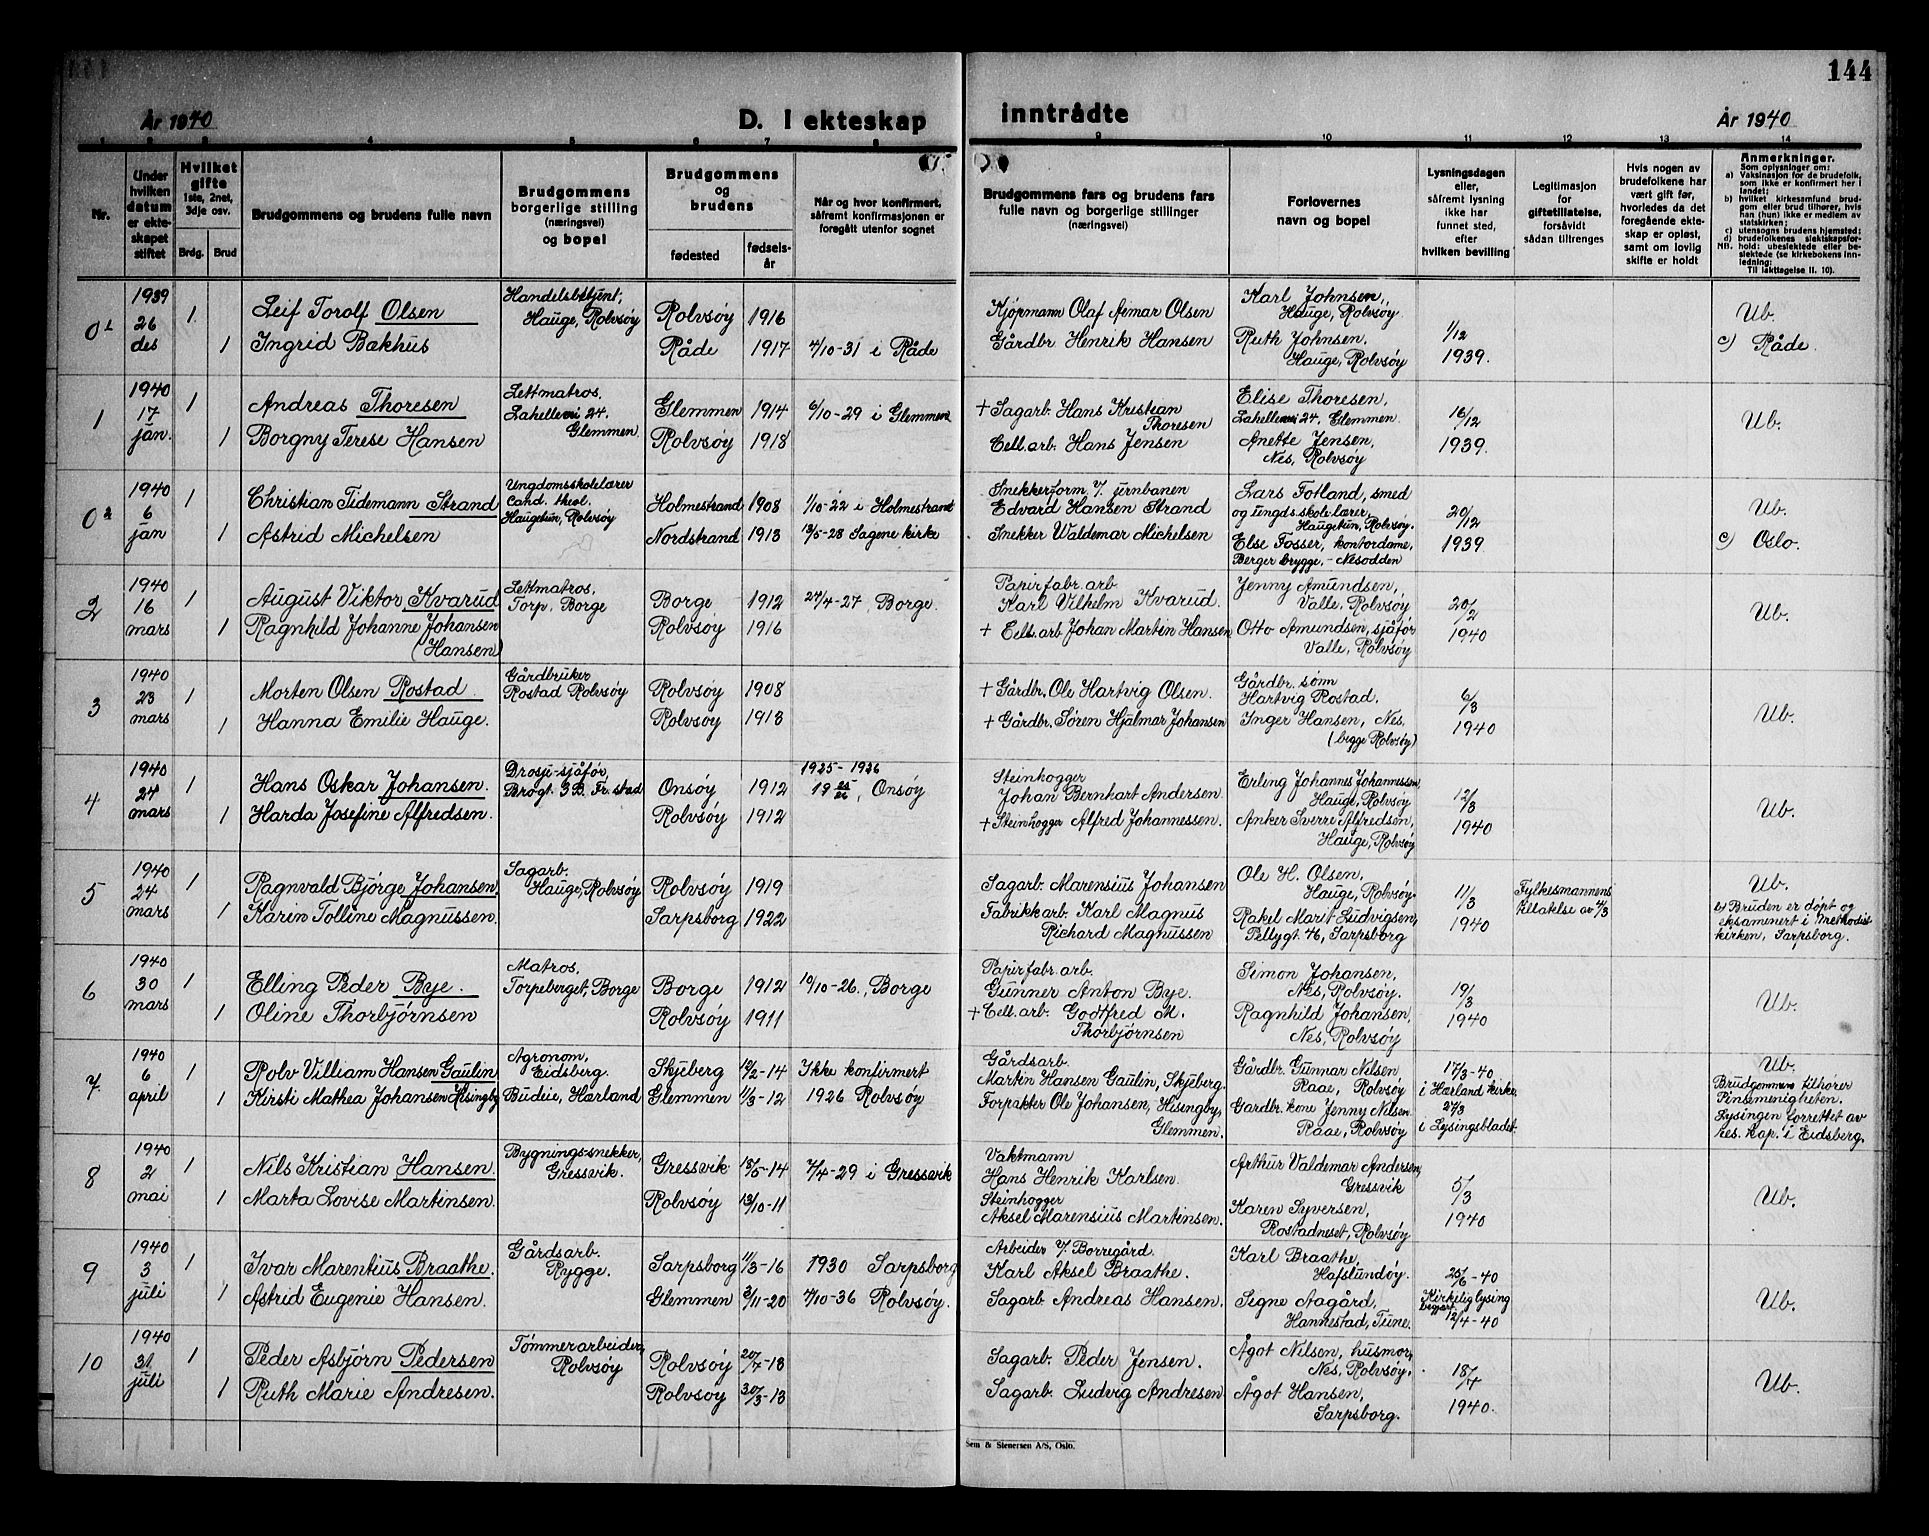 144
År 1940
D. I ekteskap
inntrådte
År 1940
1 2 3 4 5 6 7 8 9 10 11 12 13 14
Nr.
Under hvilken datum er ekteskapet stiftet
Hvilket gifte 1ste, 2net, 3dje osv.
Brdg.
Brud
Brudgommens og brudens fulle navn
Brudgommens borgerlige stilling (næringsvei) og bopel
Brudgommens og brudens
fødested
fødselsår
Når og hvor konfirmert, såfremt konfirmasjonen er foregått utenfor sognet
Brudgommens fars og brudens fars fulle navn og borgerlige stillinger (næringsvei)
Forlovernes navn og bopel
Lysningsdagen eller, såfremt lysning ikke har funnet sted, efter hvilken bevilling
Legitimasjon for giftetillatelse, forsåvidt sådan tiltrenges
Hvis nogen av brudefolkene har vært gift før, hvorledes da det foregående ekteskap er opløst, samt om lovlig skifte er holdt
Anmerkninger.
Som oplysninger om:
a) Vaksinasjon for de brudefolk, som ikke er konfirmert her i landet;
b) hvilket kirkesamfund brudgom eller brud tilhører, hvis han (hun) ikke er medlem av statskirken;
c) utensogns brudens hjemsted;
d) brudefolkenes slektskapsforhold:
NB. ubeslektede eller beslektede (se kirkebokens innledning: Til Iakttagelse II. 10).
01
1939 26 des
1
Leif Torolf Olsen
Handelsbetjent, Hauge, Rolvsøy
Rolvsøy 1916
Kjøpmann Olaf Aimar Olsen
Karl Johnsen, Hauge, Rolvsøy
1/12 1939.
Ub.
1
Ingrid Bækhus
Råde 1917
4/10-31 i Råde
Gårdbr Henrik Hansen
Ruth Johnsen, Hauge, Rolvsøy
c) Råde.
1
1940 17 jan.
1
Andreas Thoresen
Lettmatros, Lahellevei 24. Glemmen
Glemmen 1914
6/10-29 i Glemmen
+ Sagarb. Hans Kristian Thoresen
Elise Thoresen, Lahellevei 24, Glemmen.
16/12 1939.
Ub.
1
Borgny Terese Hansen
Rolvsøy 1918
Cell. arb. Hans Jensen
Anette Jensen, Nes, Rolvsøy
02
1940 6 jan
1
Christian Tidemann Strand
Ungdomsskolelærer Cand. theol. Haugetun, Rolvsøy
Holmestrand 1908
1/10-22 i Holmestrand
Snekkerform. v/ jernbanen Edvard Hansen Strand
Lars Fotland, smed og ungds.skolelærer, Haugetun, Rolvsøy.
20/12 1939
Ub.
1
Astrid Michelsen
Nordstrand 1913
13/5-28 Sagene kirke
Snekker Waldemar Michelsen
Else Fosser, kontordame, Berger brygge, - Nesodden
c) Oslo.
2
1940 16 mars
1
August Viktor Kvarud
Lettmatros, Torp, Borge
Borge 1912
24/4-27, Borge.
Papirfabr. arb. Karl Vilhelm Kvarud.
Jenny Amundsen, Valle, Rolvsøy
20/2 1940
Ub.
1
Ragnhild Johanne Johansen (Hansen)
Rolvsøy 1916
+ Cell. arb Johan Martin Hansen
Otto Amundsen, sjåfør Valle, Rolvsøy
3
1940 23 mars
1
Morten Olsen Rostad.
Gårdbruker Rostad Rolvsøy
Rolvsøy 1908
+ Gårdbr. Ole Hartvig Olsen.
Gårdbr. sønn Hartvig Rostad.
6/3 1940
Ub.
1
Hanna Emilie Hauge.
Rolvsøy 1918
+ Gårdbr. Søren Hjalmar Johansen
Inger Hansen, Nes. (begge Rolvsøy)
4
1940 24 mars
1
Hans Oskar Johansen.
Drosje-sjåfør, Brogt. 3B. Fr.stad
Onsøy 1912
1925-1926 19 25/26, Onsøy
Steinhogger Johan Bernhart Andersen.
Erling Johannes Johannessen, Hauge, Rolvsøy
12/3 1940
Ub.
1
Harda Josefine Alfredsen.
Rolvsøy 1912
+ Steinhogger Alfred Johannessen.
Anker Sverre Alfredsen, Hauge, Rolvsøy
5
1940 24 mars
1
Ragnvald Bjørge Johansen
Sagarb. Hauge, Rolvsøy
Rolvsøy 1919
Sagarb. Marensius Johansen
Ole H. Olsen, Hauge, Rolvsøy.
11/3 1940
Fylkesmannens tillatelse av 4/3
Ub.
1
Karin Tolline Magnussen.
Sarpsborg 1922
Fabrikkarb. Karl Magnus Richard Magnussen
Rakel Marit Ludvigsen, Pellygt. 46, Sarpsborg
b) Bruden er døpt og eksaminert i Methodistkirken, Sarpsborg.
6
1940 30 mars
1
Elling Peder Bye.
Matros, Torpeberget, Borge
Borge 1912
10/10-26., Borge
Papirfabr. arb. Gunner Anton Bye.
Simon Johansen, Nes, Rolvsøy.
19/3 1940
Ub.
1
Oline Thorbjørnsen
Rolvsøy 1911
+ Cell. arb. Godtfred M. Thorbjørnsen
Ragnhild Johansen, Nes, Rolvsøy
7.
1940 6 april
1
Rolv Villiam Hansen Gaulin
Agronom, Eidsberg.
Skjeberg 12/2-14
Ikke konfirmert
Gårdsarb. Martin Hansen Gaulin, Skjeberg.
Gårdbr. Gunnar Nilsen, Raae, Rolvsøy
17/3-40 i Hærland kirke. 27/3 i Lysingsbladet.
Ub.
1
Kirsti Mathea Johansen Hisingby
Budeie, Hærland
Glemmen 11/3-12
1926 Rolvsøy
Forpakter Ole Johansen, Hisengby, Glemmen.
Gardbr. kone Jenny Nilsen Raae, Rolvsøy
Brudgommens tilhører Pinsemenigheten. Lysingen forrettet av res. kap. i Eidsberg.
8
1940 2 mai
1
Nils Kristian Hansen.
Bygnings-snekker, Gressvik.
Gressvik 18/5-14
7/4-29 i Gressvik
Vaktmann Hans Henrik Karlsen.
Arthur Valdemar Andersen, Gressvik
5/3 1940
Ub.
1
Marta Lovise Martinsen.
Rolvsøy 13/10-11
Steinhogger Aksel Marensius Martinsen.
Karen Syversen, Rostadneset, Rolvsøy
9
1940 3 juli
1
Ivar Marentius Braathe.
Gårdsarb. Rygge.
Sarpsborg 11/3-16
1930 Sarpsborg
Arbeider v/ Borregård. Karl Aksel Braathe.
Karl Braathe, Hafslundsøy.
25/6-40 Kirkelig lysing begjært 12/4-40
Ub.
1
Astrid Eugenie Hansen.
Glemmen 3/11-20
4/10-36 Rolvsøy.
Sagarb Andreas Hansen.
Signe Aagård, Hannestad, Tune.
10
1940 31 juli
1
Peder Asbjørn Pedersen
Tømmerarbeider, Rolvsøy
Rolvsøy 20/7-13
Sagarb. Peder Jensen.
Ågot Nilsen, husmor, Nes, Rolvsøy.
18/7 1940.
Ub.
1
Ruth Marie Andresen.
Rolvsøy 30/3-13
Sagarb. Ludvig Andresen
Ågot Hansen, Sarpsborg.
Sem & Stenersen A/S, Oslo.